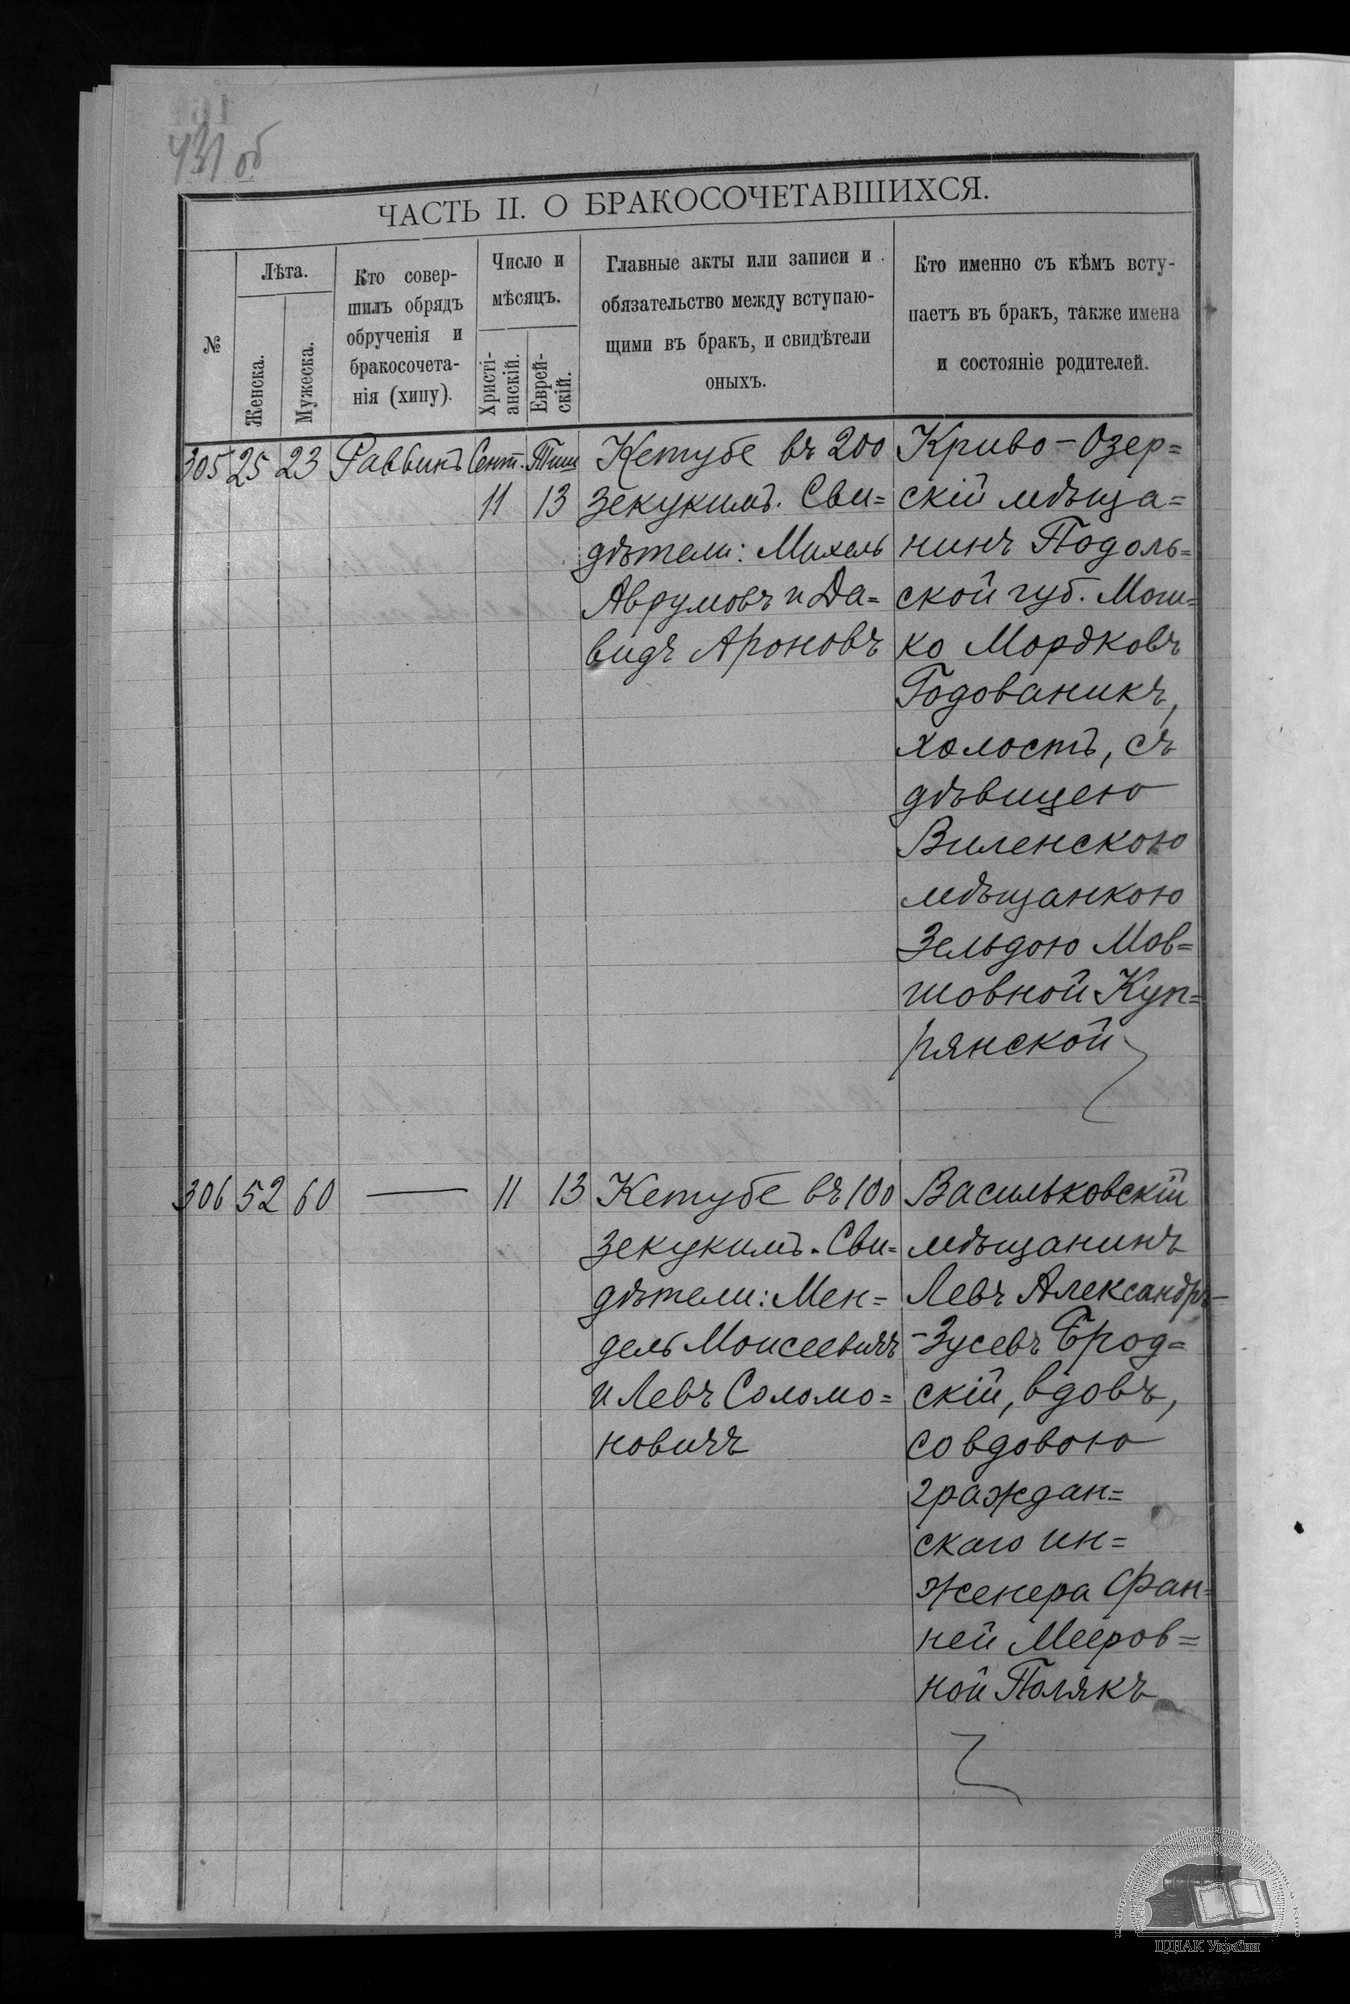 431 об
ЧАСТЬ II. О БРАКОСОЧЕТАВШИХСЯ.
№
Лѣта.
Женска.
Мужеска.
Кто совер-
шилъ обрядъ
обрученія и
бракосочета-
нія (хипу).
Число и
мѣсяцъ.
Христі-
анскій.
Еврей-
скій.
Главные акты или записи и
обязательство между вступаю-
щими въ бракъ, и свидѣтели
оныхъ.
Кто именно съ кѣмъ всту-
паетъ въ бракъ, также имена
и состояніе родителей.
305 25 23 Раввинъ Сент. Тиш
11 13
Кетубе въ 200
зекукимъ. Сви=
дѣтели: Михель
Аврумовъ и Да=
видъ Ароновъ
Криво-Озер=
скій мѣща=
нинъ Подоль=
ской губ. Мош=
ко Мордковъ
Годованикъ,
холостъ, съ
дѣвицею
Виленскою
мѣщанкою
Зельдою Мов=
шовной Куп=
рянской
306 52 60 — 11 13
Кетубе въ 100
зекукимъ. Сви=
дѣтели: Мен=
дель Моисеевичъ
и Левъ Соломо=
новичъ
Васильковскій
мѣщанинъ
Левъ Александръ-
-Зусевъ Брод=
скій, вдовъ,
со вдовою
граждан=
скаго ин=
женера Фан=
ней Мееров=
ной Полякъ
ЦДІАК України